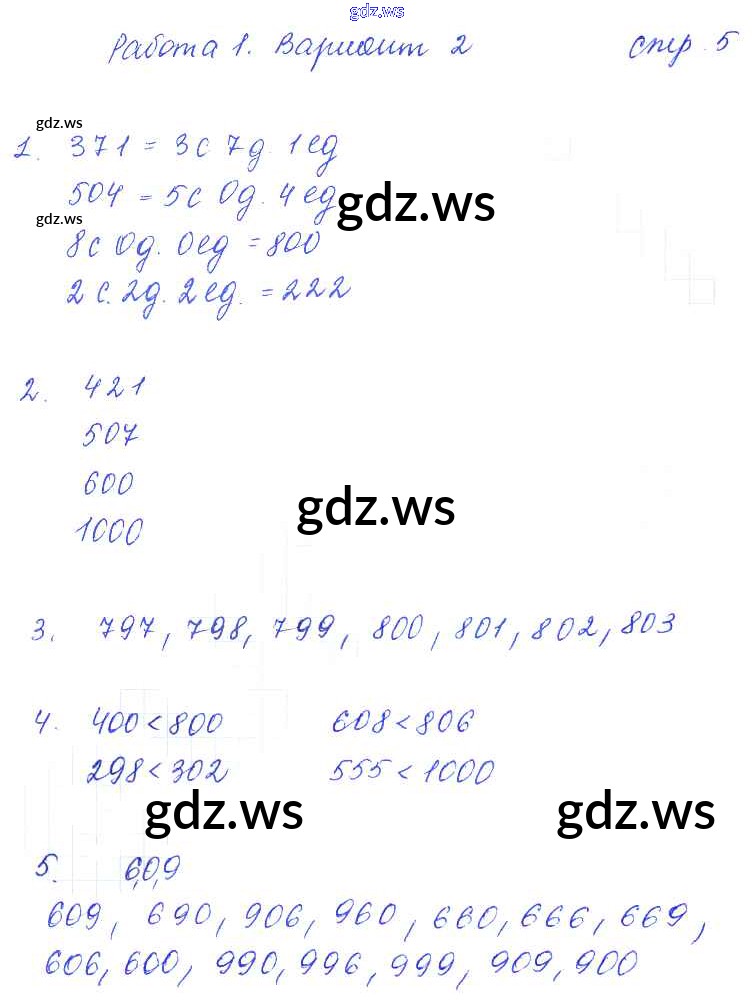 gdz.ws
Работа 1. Вариант 2 стр. 5
gdz.ws
1. 371 = 3с 7д. 1ед
504 = 5с 0д. 4ед
gdz.ws
gdz.ws
8с 0д. 0ед = 800
2с. 2д. 2ед. = 222
2. 421
507
600
gdz.ws
1000
3. 797, 798, 799, 800, 801, 802, 803
4. 400 < 800 608 < 806
298 < 302 555 < 1000
gdz.ws gdz.ws
5. 6,0,9
609, 690, 906, 960, 660, 666, 669,
606, 600, 990, 996, 999, 909, 900